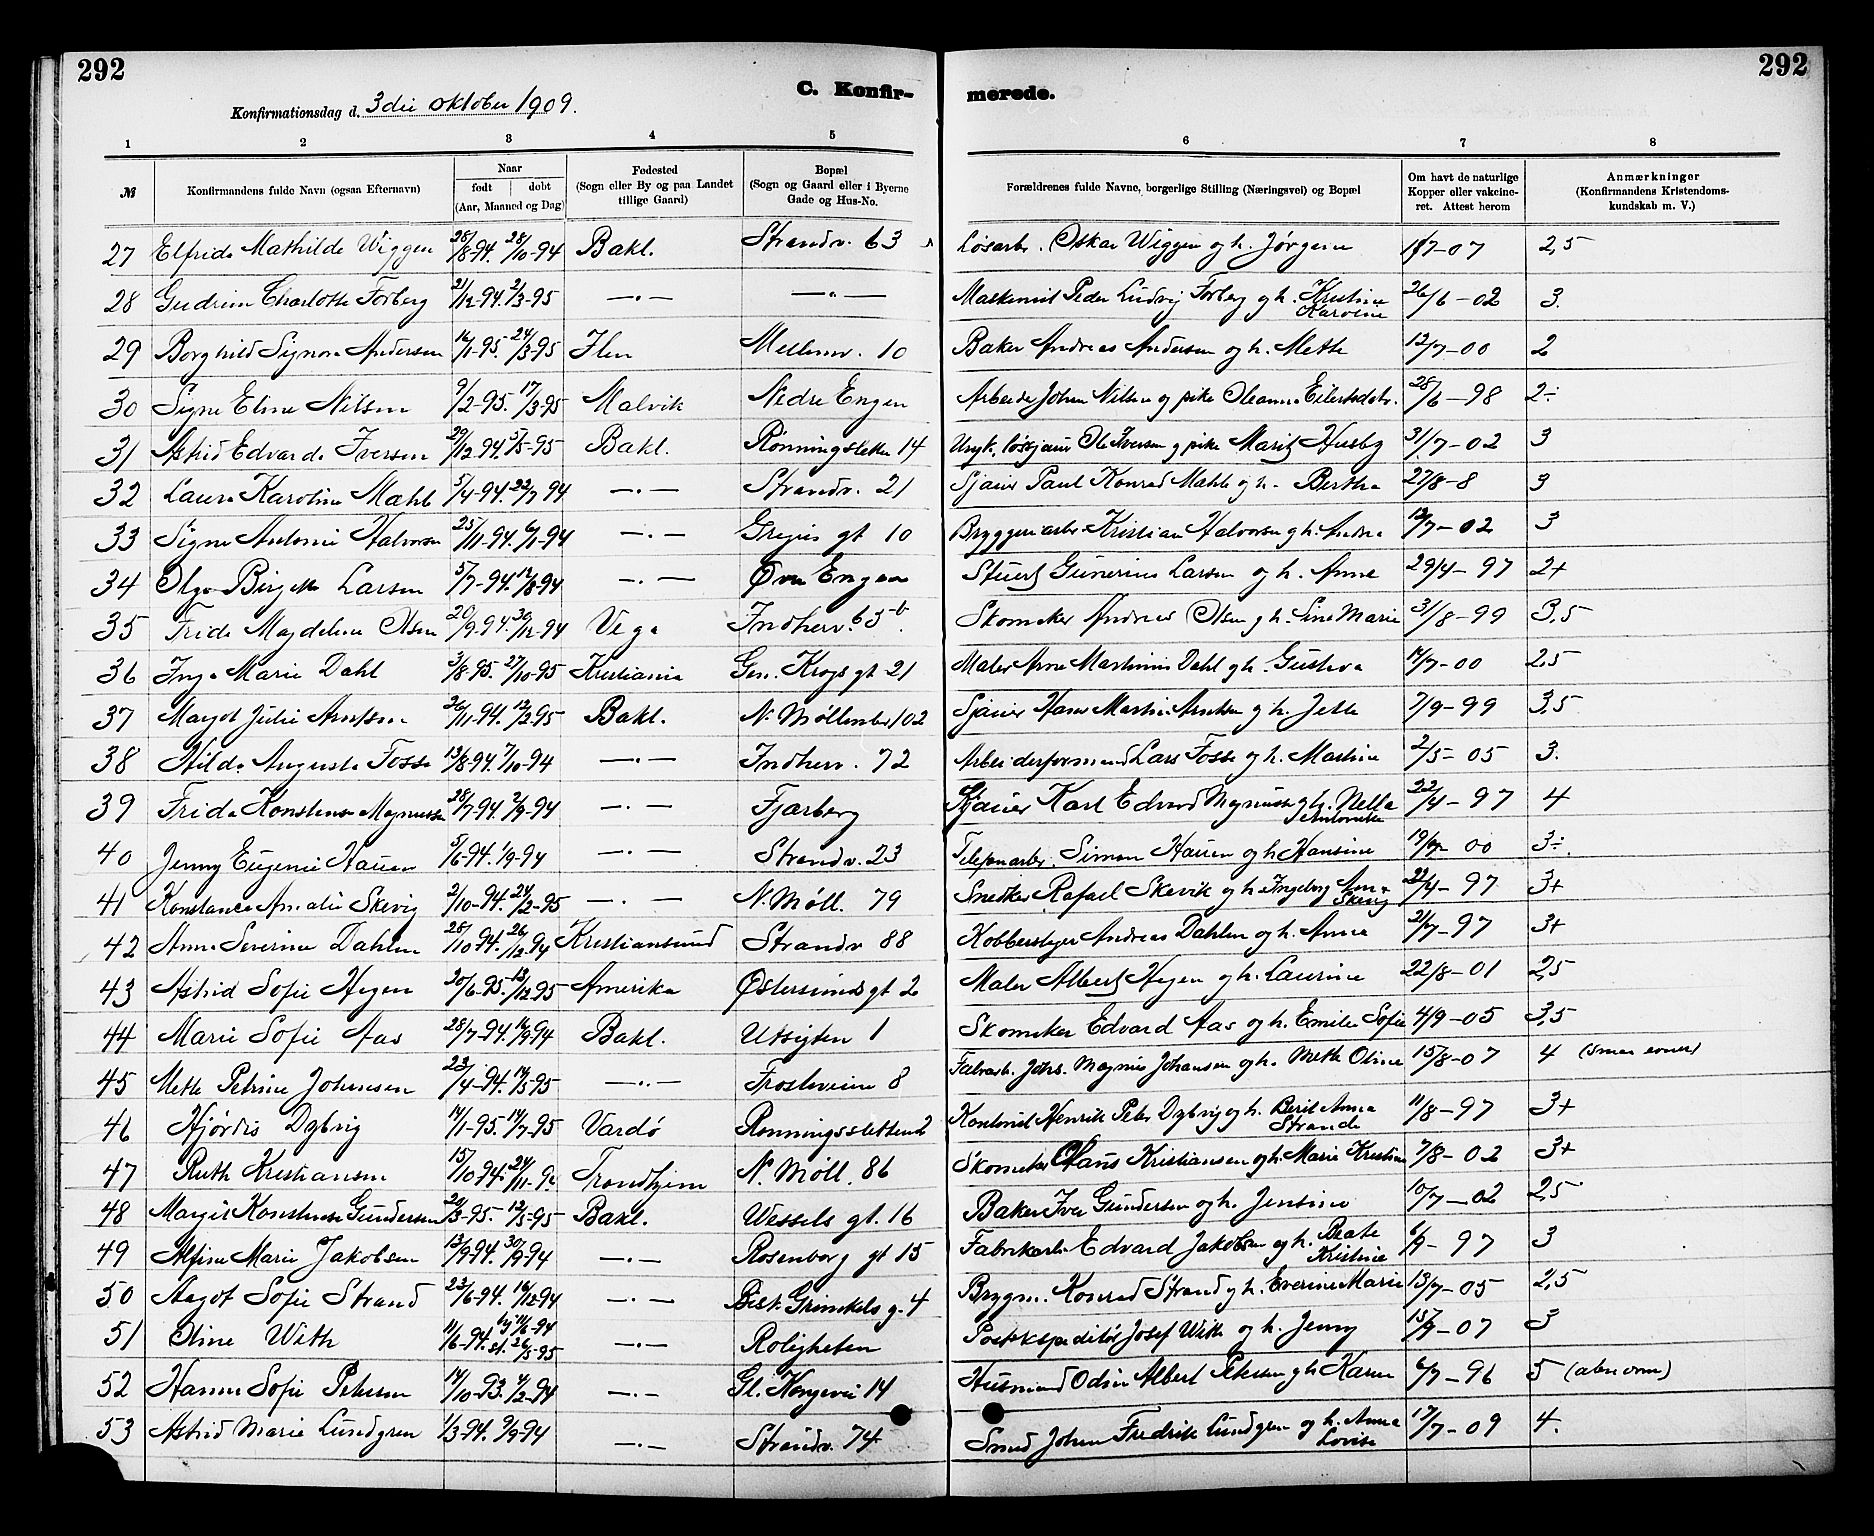 292
292
C. Konfir-
merede.
Konfirmationsdag d. 3die oktober 1909.
1 2 3 4 5 6 7 8
№ Konfirmandens fulde Navn (ogsaa Efternavn) Naar født | døbt (Aar, Maaned og Dag) Fødested (Sogn eller By og paa Landet tillige Gaard) Bopæl (Sogn og Gaard eller i Byerne Gade og Hus-No. Forældrenes fulde Navne, borgerlige Stilling (Næringsvei) og Bopæl Om havt de naturlige Kopper eller vakcineret. Attest herom Anmærkninger (Konfirmandens Kristendomskundskab m. V.)
27 Elfrida Mathilde Wiggen 28/8-94. 28/10-94 Bakl. Strandv. 63 Løsarb. Oskar Wiggen og h. Jørgine 7-07 2,5
28 Gudrun Charlotte Forberg 21/12-94. 2/3-95 —"— —"— Maskinist Peder Ludvig Forberg og h. Kristine Karoline 26/6-02 3.
29 Borghild Signora Andersen 16/1-95. 24/3-95 Ilen Mellemv. 10 Baker Andreas Andersen og h. Mette 12/7-00 2
30 Signe Eline Nilsen 9/2-95. 17/3-95 Malvik Nedre Engen Arbeider Johan Nilsen og pike Oleanna Eilertsdatr. 28/6-98 2÷
31 Astrid Edvarda Iversen 29/12-94. 5/5-95 Bakl. Rønningsletten 14 Ungk. løssjauer Ole Iversen og pike Marit Husby 31/7-02 3
32 Laura Karoline Mahle 5/4-94. 22/7-94 —"— Strandv. 21 Sjauer Paul Konrad Mahle og h. Bertha 27/8-8 3
33 Signe Antonie Halvorsen 25/11-94. 6/1-94 —"— Gregus gt 10 Bryggeriarb. Kristian Halvorsen og h. Andrea 12/7-02 3
34 Olga Birgitte Larsen 5/7-94. 12/8-94 —"— Øvre Engen Stuert Gunerius Larsen og h. Anna 29/4-97 2+
35 Frida Magdalena Olsen 20/9-94. 30/12-94 Vega Indherv. 65 b. Skomaker Andreas Olsen og h. Sine Marie 31/8-99 3,5
36 Inga Marie Dahl 3/8-95. 27/10-95 Kristiania Gen. Krogs gt 21 Maler Arne Martinius Dahl og h. Gustava 17/7-00 2,5
37 Margot Julie Arntsen 26/11-94. 12/2-95 Bakl. N. Møllenber 102 Sjauer Hans Martin Arntsen og h. Jette 7/9-99 3,5
38 Hilda Augusta Fosse 13/8-94. 7/10-94 —"— Indherv. 72 Arbeiderformand Lars Fosse og h. Martine 2/5-05 3.
39 Frida Konstanse Magnussen 28/7-94. 2/9-94 —"— Fjærberg Sjauer Karl Edvard Magnussen og h. Nella Antonette 22/4-97 4
40 Jenny Eugenie Hauen 5/6-94. 1/9-94 —"— Strandv. 23 Telefonarb. Simon Hauen og h. Hansine 19/7-00 3÷.
41 Konstance Amalie Skevig 2/10-94. 24/2-95 —"— N. Møll. 79 Snedker Rafael Skevik og h. Ingeborg Anna Skevig 22/4-97 3+
42 Anna Severine Dahlen 28/10-94. 26/12-94 Kristiansund Strandv 88 Kobberslager Andreas Dahlen og h. Anna 21/7-97 3+
43 Astrid Sofie Hagen 20/6-95. 13/12-95 Amerika Østersunds gt 2 Maler Albert Hagen og h. Laurine 22/8-01 2,5
44 Marie Sofie Aas 28/7-94. 16/9-94 Bakl. Utsigten 1 Skomaker Edvard Aas og h. Emilie Sofie 4/9-05 3,5
45 Mette Petrine Johansen 23/4-94. 14/5-95 —"— Frostaveien 8 Fabrarb. Johs. Magnus Johansen og h. Mette Oline 15/8-07 4 (smaa evner)
46 Hjørdis Dybvig 14/1-95. 14/7-95 Vardø Rønningssletten 2 Kontorist Henrik Peter Dybvig og h. Berit Anna Strande 11/8-97 3+
47 Ruth Kristiansen 15/10-94. 24/11-9 Trondhjem N. Møll. 86 Skomaker Claus Kristiansen og h. Marie Kristine 7/8-02 3+
48 Margit Konstanse Gundersen 20/3-95. 12/5-95 Bakl. Wessels gt. 16 Baker Iver Gundersen og h. Jensine 10/7-02 2,5
49 Alfine Marie Jakobsen 13/9-94. 30/9-94 —"— Rosenborg gt 15 Fabrikarb. Edvard Jakobsen og h. Beate Kristine 6/9-97 3
50 Aagot Sofie Strand 23/6-94. 16/12-94 —"— Bisk. Grimkels g. 4 Brygm. Konrad Strand og h. Everine Marie 13/7-05 2,5
51 Oline With 11/6-94. 11/6-94 st. 26/5-95 —"— Roligheten Postekspeditør Josef With og h. Jenny 15/9-07 3
52 Hanna Sofie Petersen 14/10-93. 4/2-94 —"— Gl. Kongevei 14 Husmand Odin Albert Petersen og h. Karen 6/7-96 5
53 Astrid Marie Lundgren 1/3-94. 9/9-94 —"— Strandv. 74 Smed Johan Fredrik Lundgren og h. Anna Lovise 17/7-09 4.